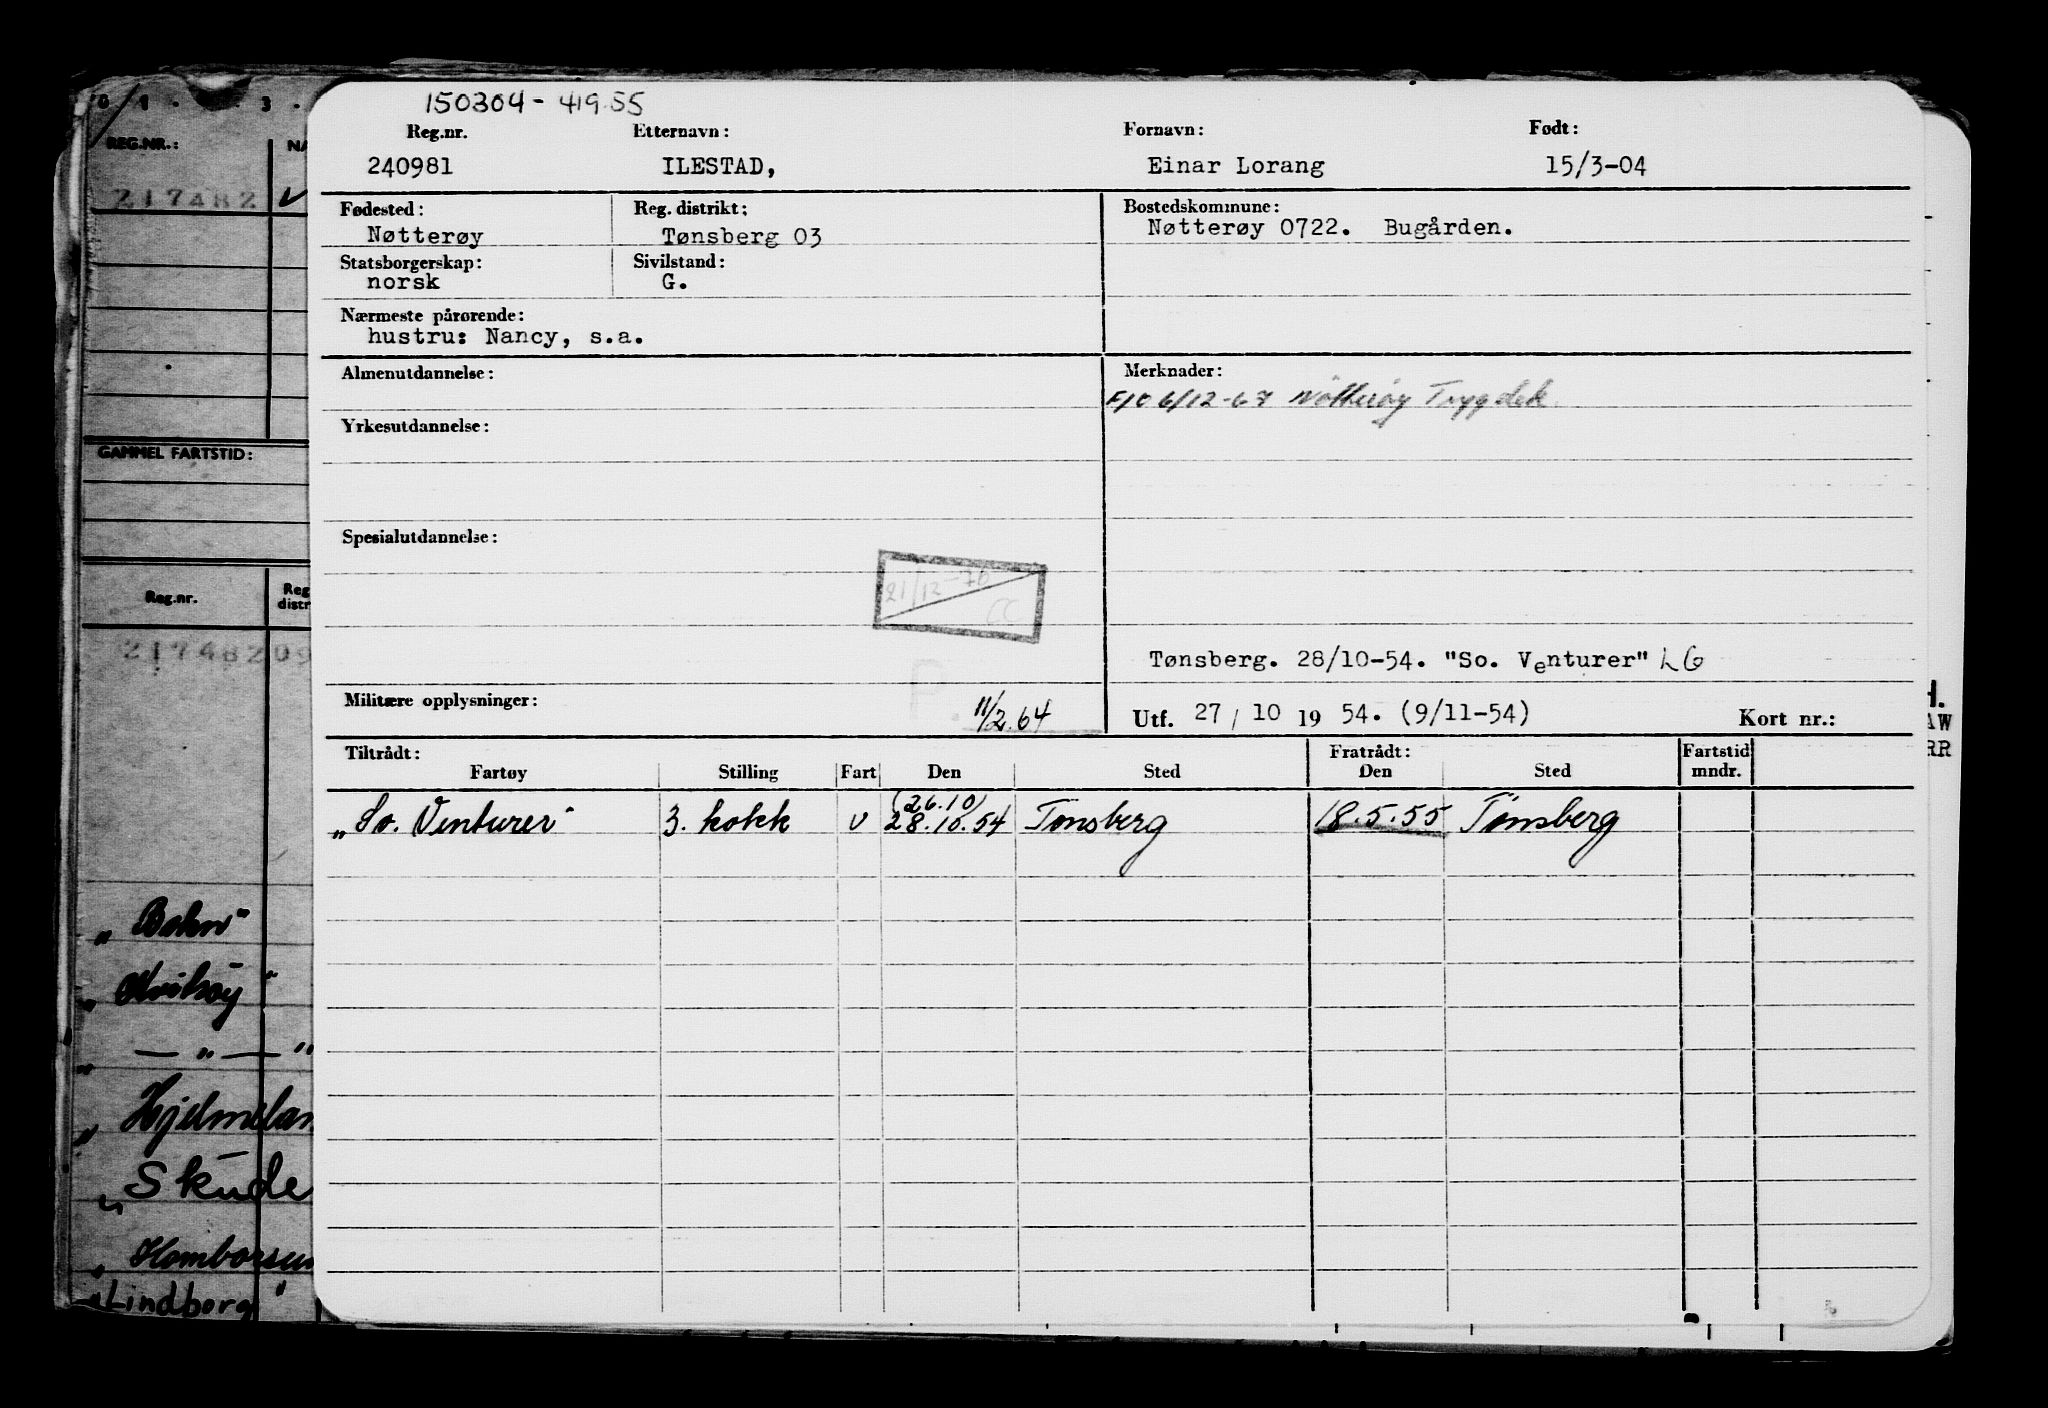 0 1 . . 3 .
REG.NR.: NA
217482 v
GAMMEL FARTSTID:
Reg.nr. Reg distr
21748209
„Hjelmelan
„Skude
„Homborsun
„Lindborg"
150304 - 419 55
Reg.nr. Etternavn: Fornavn: Født:
240981 ILESTAD, Einar Lorang 15/3-04
Fødested: Reg. distrikt: Bostedskommune:
Nøtterøy Tønsberg 03 Nøtterøy 0722. Bugården.
Statsborgerskap: Sivilstand:
norsk G.
Nærmeste pårørende:
hustru: Nancy, s.a.
Almenutdannelse: Merknader:
6/12-67 Nøtterøy Trygdek.
Yrkesutdannelse:
Spesialutdannelse:
21/12-76
CC
Tønsberg. 28/10-54. "So. Venturer" LG
Militære opplysninger: 11/2.64 Utf. 27/10 19 54. (9/11-54) Kort nr.:
Tiltrådt: Fratrådt: Fartstid
Fartøy Stilling Fart Den Sted Den Sted mndr.
(26.10)
„So. Venturer" 3. kokk v 28.10.54 Tønsberg 18.5.55 Tønsberg
H.
AW
RR